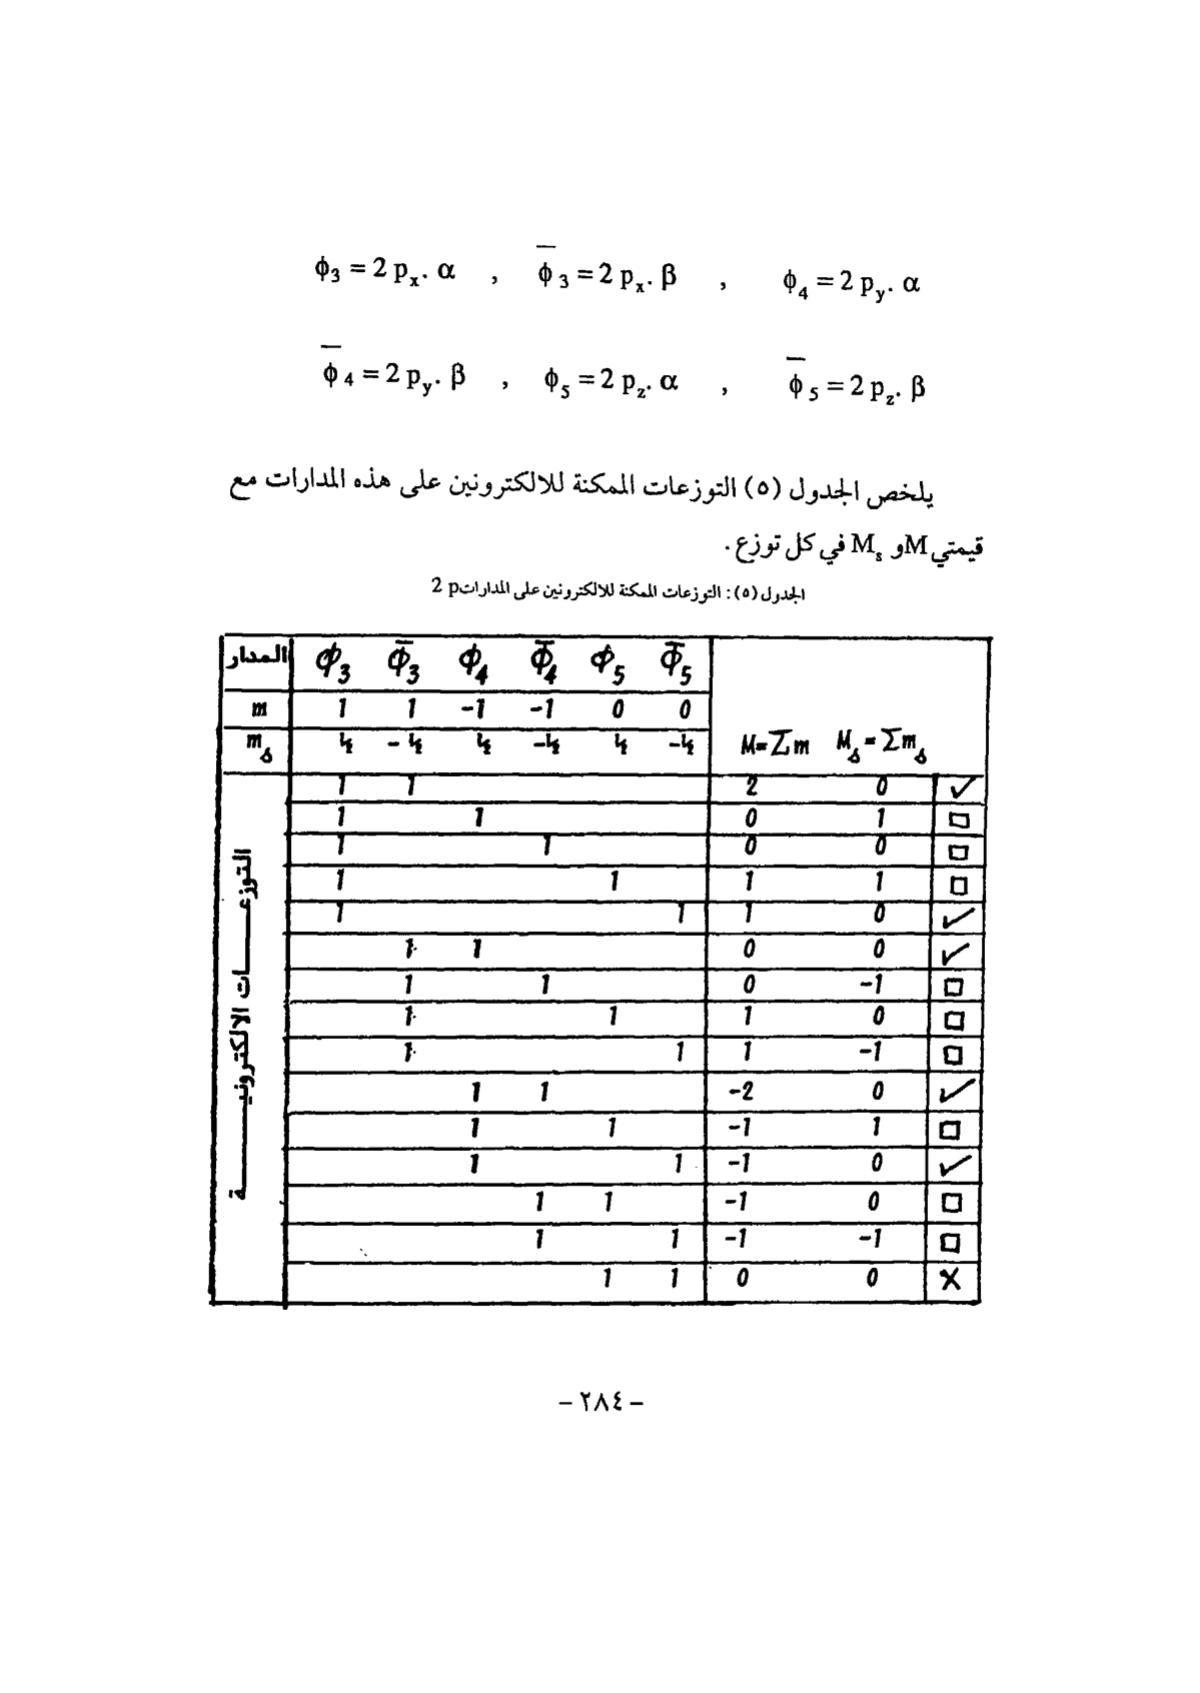 ϕ3 = 2 px. α , ϕ̅3 = 2 px. β , ϕ4 = 2 py. α
ϕ̅4 = 2 py. β , ϕ5 = 2 pz. α , ϕ̅5 = 2 pz. β
يلخص الجدول (٥) التوزعات الممكنة للالكترونين على هذه المدارات مع
قيمتي M و Ms في كل توزع .
الجدول (٥) : التوزعات الممكنة للالكترونين على المدارات 2 p
المدار ϕ3 ϕ̅3 ϕ4 ϕ̅4 ϕ5 ϕ̅5
m 1 1 -1 -1 0 0
ms ½ -½ ½ -½ ½ -½ M=Σm Ms=Σms
التوزعات الالكترونية
1 1 2 0 ✓
1 1 0 1 □
1 1 0 0 □
1 1 1 1 □
1 1 1 0 ✓
1 1 0 0 ✓
1 1 0 -1 □
1 1 1 0 □
1 1 1 -1 □
1 1 -2 0 ✓
1 1 -1 1 □
1 1 -1 0 ✓
1 1 -1 0 □
1 1 -1 -1 □
1 1 0 0 ×
- ٢٨٤ -